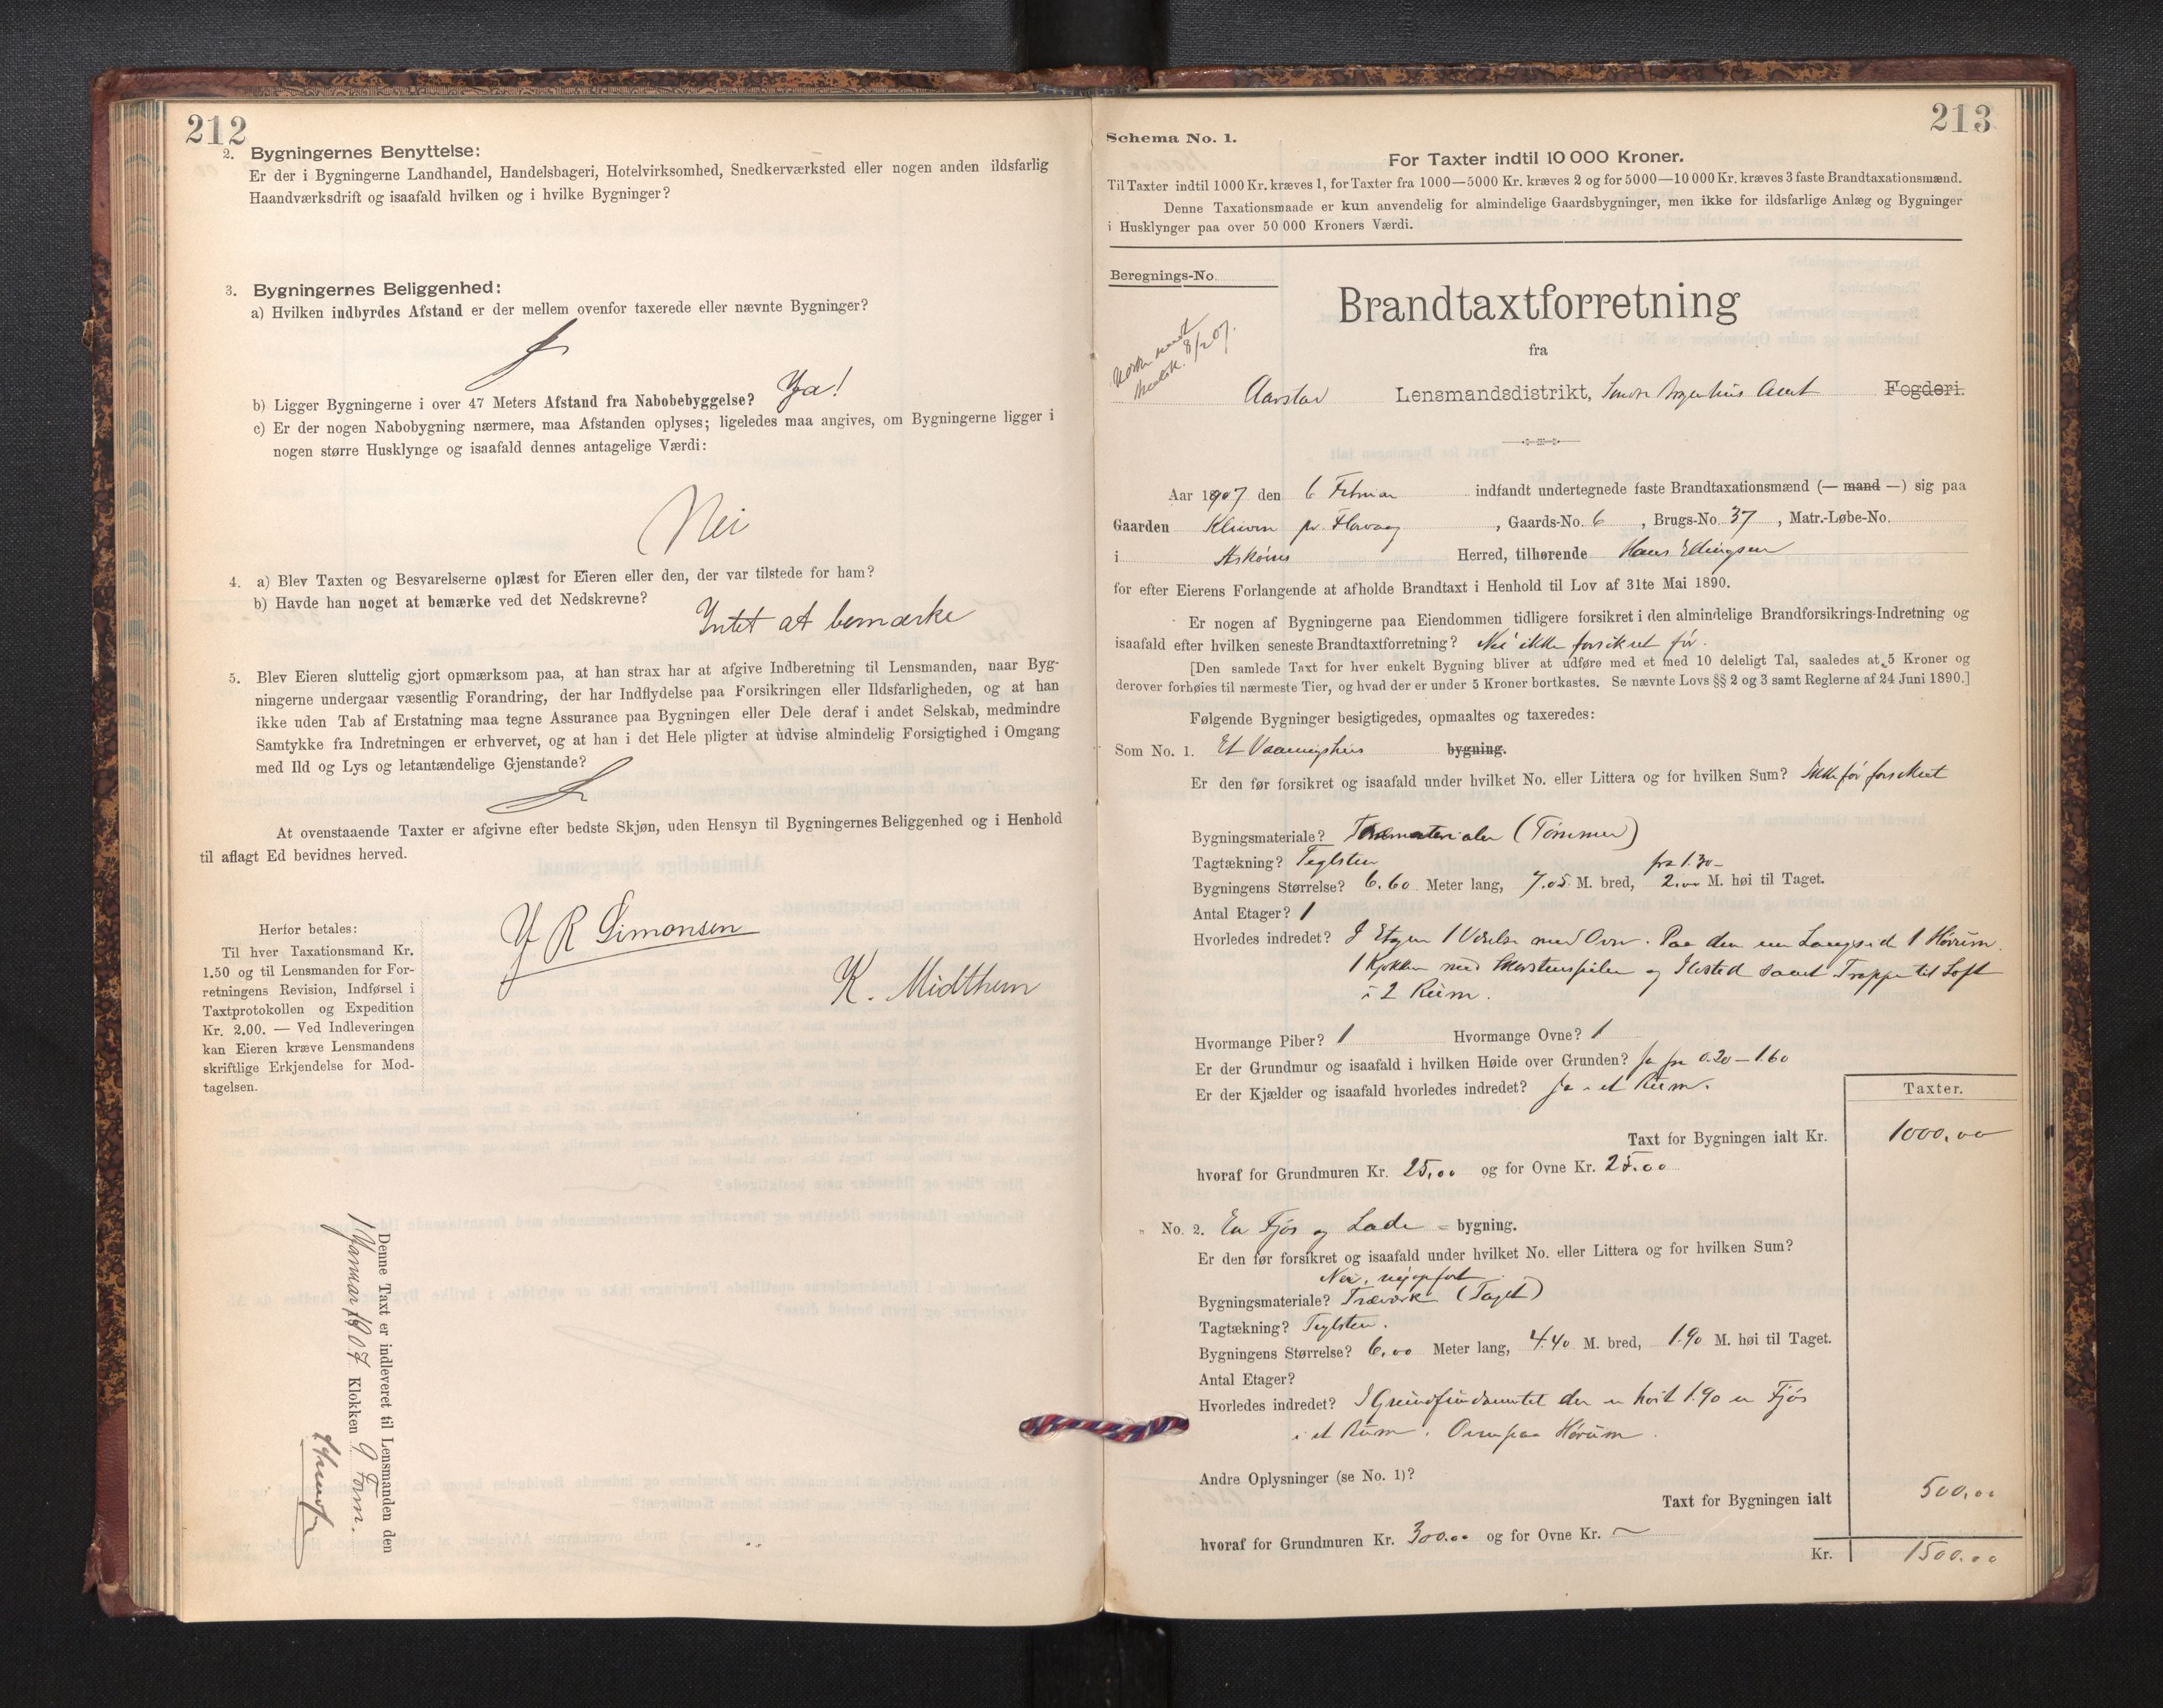 212
2. Bygningernes Benyttelse:
Er der i Bygningerne Landhandel, Handelsbageri, Hotelvirksomhed, Snedkerværksted eller nogen anden ildsfarlig
Haandværksdrift og isaafald hvilken og i hvilke Bygninger?
3. Bygningernes Beliggenhed:
a) Hvilken indbyrdes Afstand er der mellem ovenfor taxerede eller nævnte Bygninger?
b) Ligger Bygningerne i over 47 Meters Afstand fra Nabobebyggelse? Ja!
c) Er der nogen Nabobygning nærmere, maa Afstanden oplyses; ligeledes maa angives, om Bygningerne ligger i
nogen større Husklynge og isaafald dennes antagelige Værdi:
Nei
4. a) Blev Taxten og Besvarelserne oplæst for Eieren eller den, der var tilstede for ham?
b) Havde han noget at bemærke ved det Nedskrevne?
Intet at bemærke
5. Blev Eieren sluttelig gjort opmærksom paa, at han strax har at afgive Indberetning til Lensmanden, naar Byg-
ningerne undergaar væsentlig Forandring, der har Indflydelse paa Forsikringen eller Ildsfarligheden, og at han
ikke uden Tab af Erstatning maa tegne Assurance paa Bygningen eller Dele deraf i andet Selskab, medmindre
Samtykke fra Indretningen er erhvervet, og at han i det Hele pligter at udvise almindelig Forsigtighed i Omgang
med Ild og Lys og letantændelige Gjenstande?
At ovenstaaende Taxter er afgivne efter bedste Skjøn, uden Hensyn til Bygningernes Beliggenhed og i Henhold
til aflagt Ed bevidnes herved.
R Simonsen
K. Midthun
Herfor betales:
Til hver Taxationsmand Kr.
1.50 og til Lensmanden for For-
retningens Revision, Indførsel i
Taxtprotokollen og Expedition
Kr. 2.00. — Ved Indleveringen
kan Eieren kræve Lensmandens
skriftlige Erkjendelse for Mod-
tagelsen.
Denne Taxt er indleveret til Lensmanden den
1 Januar 1907 Klokken 9 Form.
213
Schema No. 1.
For Taxter indtil 10 000 Kroner.
Til Taxter indtil 1000 Kr. kræves 1, for Taxter fra 1000—5000 Kr. kræves 2 og for 5000—10 000 Kr. kræves 3 faste Brandtaxationsmænd.
Denne Taxationsmaade er kun anvendelig for almindelige Gaardsbygninger, men ikke for ildsfarlige Anlæg og Bygninger
i Husklynger paa over 50 000 Kroners Værdi.
Beregnings-No.
Brandtaxtforretning
fra
8/2 07.
Aarstad Lensmandsdistrikt, Søndre Bergenhus Amt Fogderi.
Aar 1907 den 6 Februar indfandt undertegnede faste Brandtaxationsmænd (— mand —) sig paa
Gaarden pr. Florvaag, Gaards-No. 6, Brugs-No. 37, Matr.-Løbe-No.
i Askøens Herred, tilhørende Hans Ellingsen
for efter Eierens Forlangende at afholde Brandtaxt i Henhold til Lov af 31te Mai 1890.
Er nogen af Bygningerne paa Eiendommen tidligere forsikret i den almindelige Brandforsikrings-Indretning og
isaafald efter hvilken seneste Brandtaxtforretning? Nei ikke forsikret før.
[Den samlede Taxt for hver enkelt Bygning bliver at udføre med et med 10 deleligt Tal, saaledes at 5 Kroner og
derover forhøies til nærmeste Tier, og hvad der er under 5 Kroner bortkastes. Se nævnte Lovs §§ 2 og 3 samt Reglerne af 24 Juni 1890.]
Følgende Bygninger besigtigedes, opmaaltes og taxeredes:
Som No. 1. Et Vaaningshus bygning.
Er den før forsikret og isaafald under hvilket No. eller Littera og for hvilken Sum? Ikke før forsikret
Bygningsmateriale? Træmaterialer (Tømmer)
Tagtækning? Teglsten fra 1.30 –
Bygningens Størrelse? 6.60 Meter lang, 7.05 M. bred, 2.00 M. høi til Taget.
Antal Etager? 1
Hvorledes indredet? I Etagen 1 Værelse med Ovn. Paa den en Langside 1 Hørum.
1 Kjøkken med Skorstenspibe og Ildsted samt Trappe til Loft
i 2 Rum.
Hvormange Piber? 1 Hvormange Ovne? 1
Er der Grundmur og isaafald i hvilken Høide over Grunden? Ja fra 0.20 – 1.60
Er der Kjælder og isaafald hvorledes indredet? Ja i et Rum.
Taxter.
Taxt for Bygningen ialt Kr. 1000.00
hvoraf for Grundmuren Kr. 25.00 og for Ovne Kr. 25.00
No. 2. En Fjøs og Lade = bygning.
Er den før forsikret og isaafald under hvilket No. eller Littera og for hvilken Sum?
Nei, nyopført
Bygningsmateriale? Træverk
Tagtækning? Teglsten.
Bygningens Størrelse? 6.00 Meter lang, 4.40 M. bred, 1.90 M. høi til Taget.
Antal Etager?
Hvorledes indredet? I Grundfundamentet der er høit 1.90 er Fjøs
i et Rum. Ovenpaa Hørum.
Andre Oplysninger (se No. 1)?
Taxt for Bygningen ialt 500.00
hvoraf for Grundmuren Kr. 300.00 og for Ovne Kr. ~
Kr. 1500.00